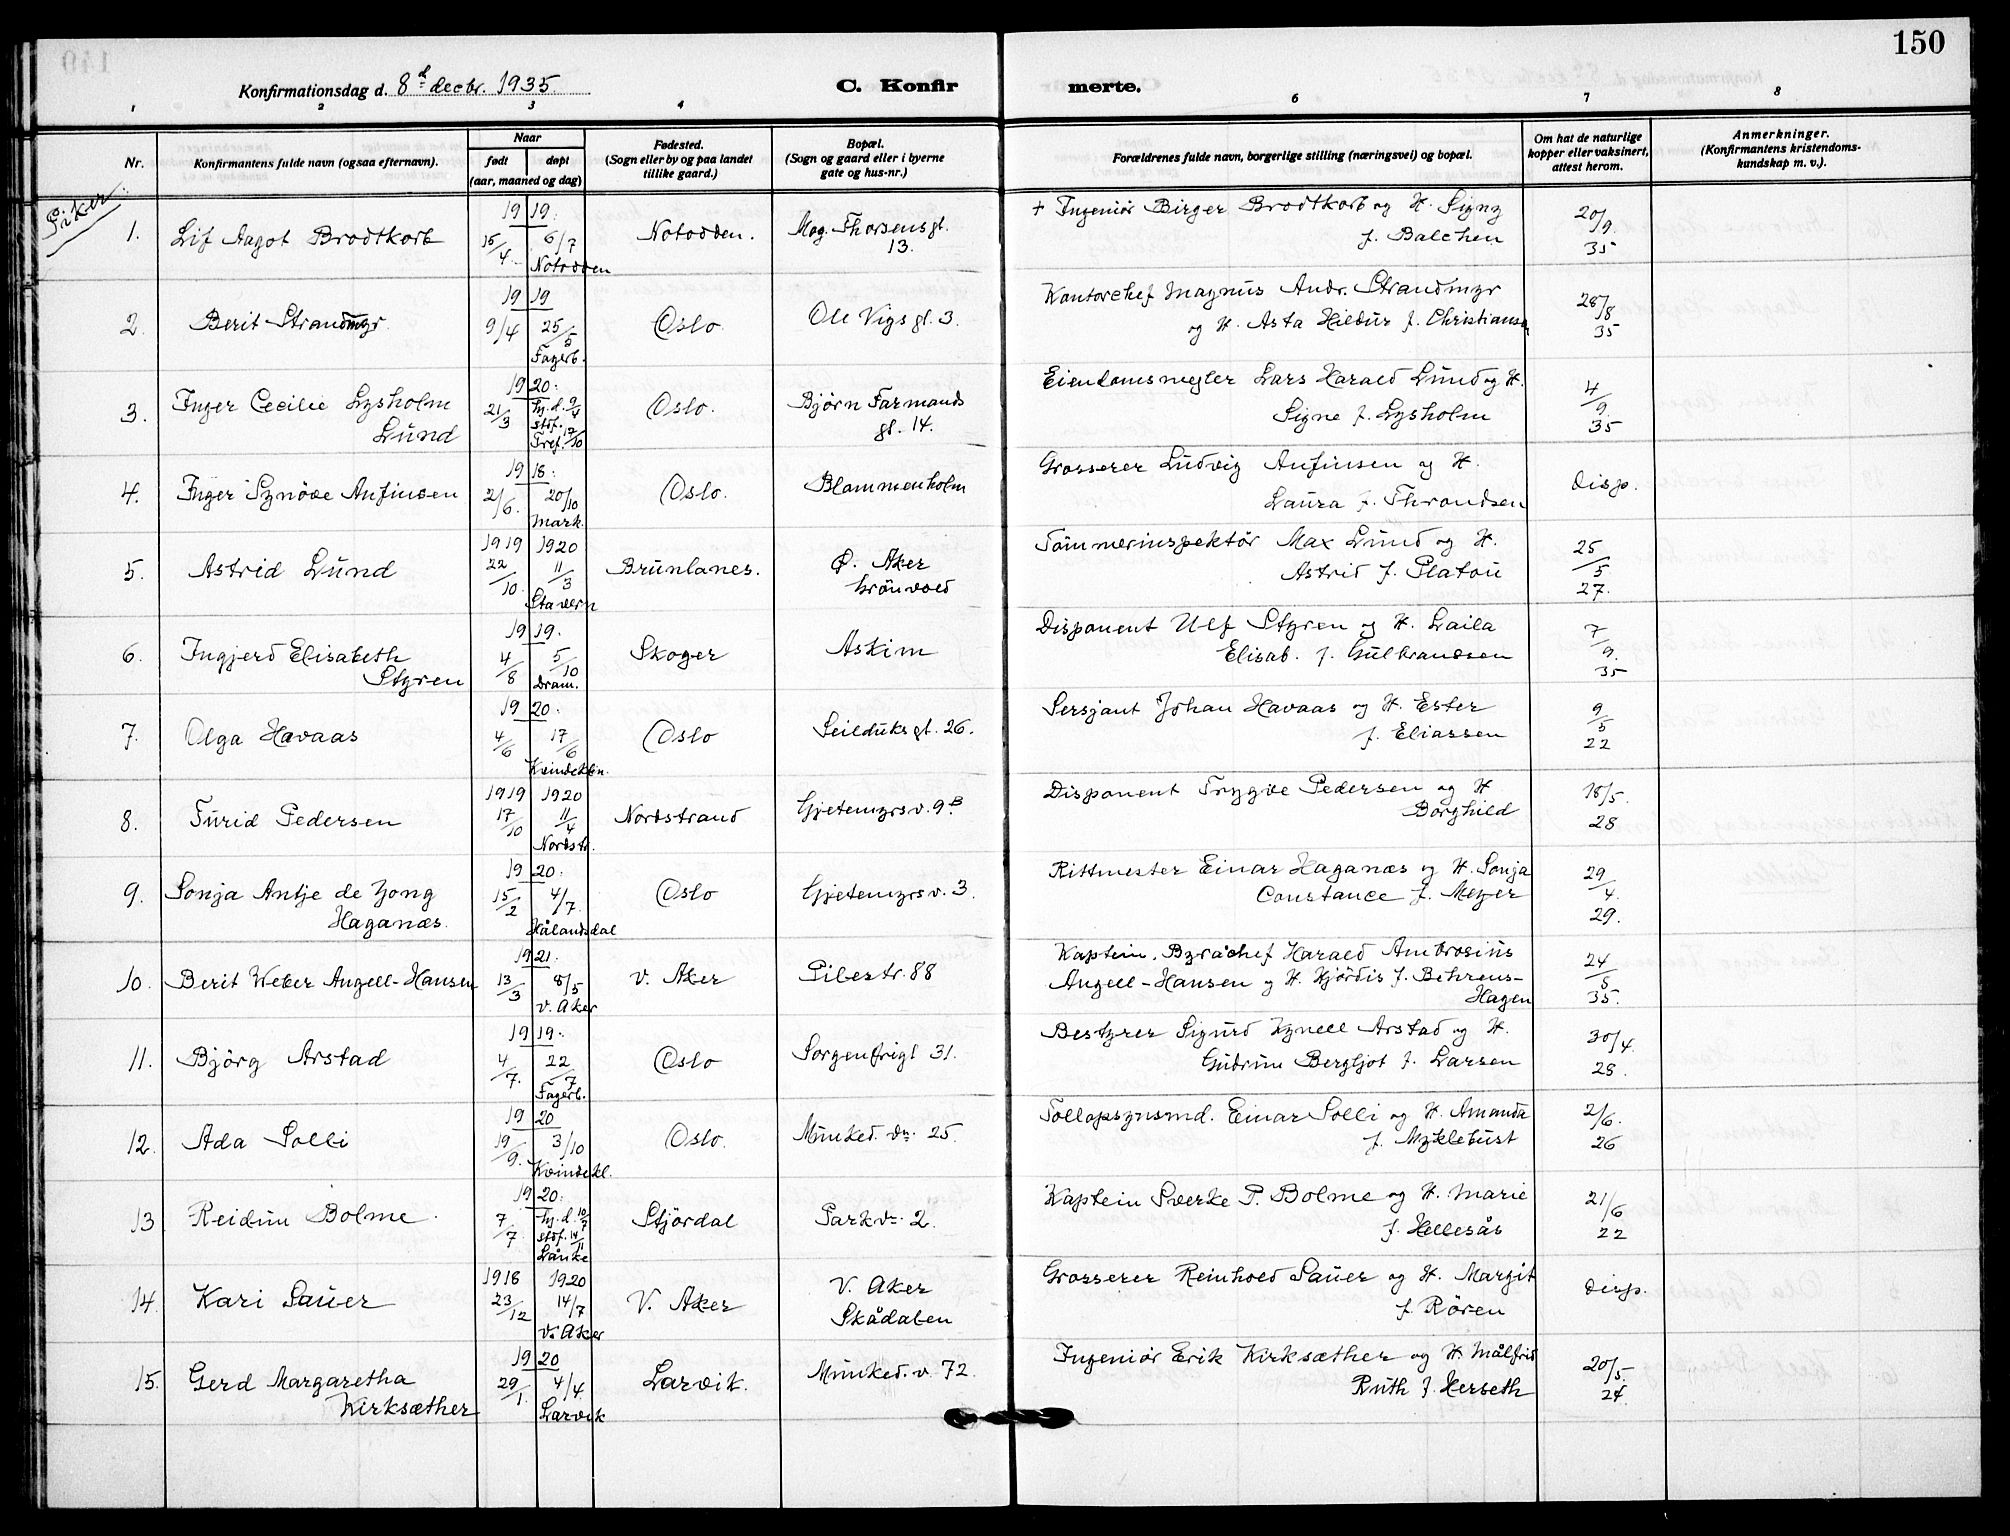 150
Konfirmationsdag d. 8d decbr. 1935.
C. Konfirmerte.
1 2 3 4 6 7 8
Nr.
Konfirmantens fulde navn (ogsaa efternavn).
Naar
født døpt
(aar, maaned og dag)
Fødested.
(Sogn eller by og paa landet
tillike gaard.)
Bopæl.
(Sogn og gaard eller i byerne
gate og hus-nr.)
Forældrenes fulde navn, borgerlige stilling (næringsvei) og bopæl.
Om hat de naturlige
kopper eller vaksinert,
attest herom.
Anmerkninger.
(Konfirmantens kristendoms-
kundskap m. v.).
Piker
1. Lif Aagot Brodtkorb 19 19. 15/4 6/7 Notodden Notodden. Mog. Thorsensgt. 13. + Ingeniör Birger Brodtkorb og H. Signy
f. Balchen 20/9. 35
2. Berit Strandmyr. 19 19 9/4 25/5 Fagerb. Oslo. Ole Vigs gt. 3. Kontorchef Magnus Andr. Strandmyr
og H. Asta Hildur f. Christiansen 28/8 35
3. Inger Cecilie Lysholm
Lund 19 20. 21/3 Hj.d. 9/4 stdf. Tref. 17/10 Oslo. Björn Farmands
gt. 14. Eiendomsmegler Lars Harald Lund og H.
Signe f. Lysholm 4/9. 35
4. Inger Synöve Anfinsen 19 18. 2/6. 20/10 Mark. Oslo. Blommenholm Grosserer Ludvig Anfinsen og H.
Laura f. Throndsen Disp.
5. Astrid Lund 1919 1920 22/10. 11/3 Stavern Brunlanes. Ø. Aker
Grönvold Tömmerinspektör Max Lund og H.
Astrid f. Platou 25/5 27.
6. Ingjerd Elisabeth
Styren 19 19. 4/8 5/10 Dram. Skoger Askim Disponent Ulf Styren og H. Laila
Elisab. f. Gulbrandsen 7/9. 35
7. Olga Havaas 19 20. 4/6 17/6 Kvindeklin. Oslo Seilduks gt. 26. Sersjant Johan Havaas og H. Ester
f. Eliassen 9/5 22
8. Turid Pedersen 1919 1920 17/10 11/4 Nordstr. Nordstrand Gjetemyrsv. 9B. Disponent Trygve Pedersen og H
Borghild 18/5. 28
9. Sonja Antje de Jong
Haganæs. 19 20. 15/2 4/7. Hålandsdal Oslo Gjetemyrsv. 3. Rittmester Einar Haganæs og H. Sonja
Constance f. Meyer 29/4. 29.
10. Berit Weber Angell-Hansen 19 21. 13/3 8/5 V. Aker V. Aker Pilestr. 88 Kaptein, Byråchef Harald Ambrosius
Angell-Hansen og H. Hjördis f. Behrens-
Hagen 24/5 35.
11. Björg Arstad 19 19. 4/7. 22/7 Fagerb. Oslo Sorgenfrigt 31. Bestyrer Sigurd Kynell Arstad og H.
Gudrun Bergljot f. Larsen 30/4. 28.
12. Ada Solli 19 20 19/9. 3/10 Kvindekl. Oslo. Munked. vn. 25. Tollopsynsmd. Einar Solli og H. Amanda
f. Myklebust 2/6. 26
13 Reidun Bolme. 19 20. 7/7 Hj.d. 10/7 stdf. 14/11 Lånke Stjördal Parkvn. 2. Kaptein Sverke P. Bolme og H. Marie
f. Hellesås 21/6 22
14. Kari Sauer 1918 1920 23/12 14/7 V. Aker V. Aker V. Aker
Skådalen Grosserer Reinhold Sauer og H. Margit
f. Rören Disp.
15. Gerd Margaretha
Kirksæther 19 20 29/1. 4/4. Larvik Larvik. Munked. v. 72. Ingeniör Erik Kirksæther og H. Målfrid
Ruth f. Herseth 20/5. 24.